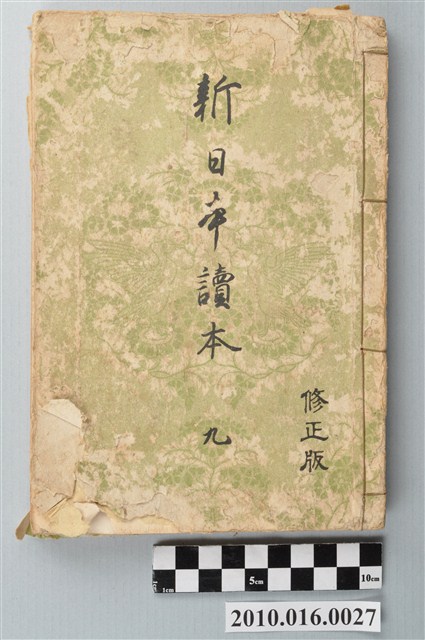 新日本讀本 九
修正版
1cm 5cm 10cm
2010.016.0027